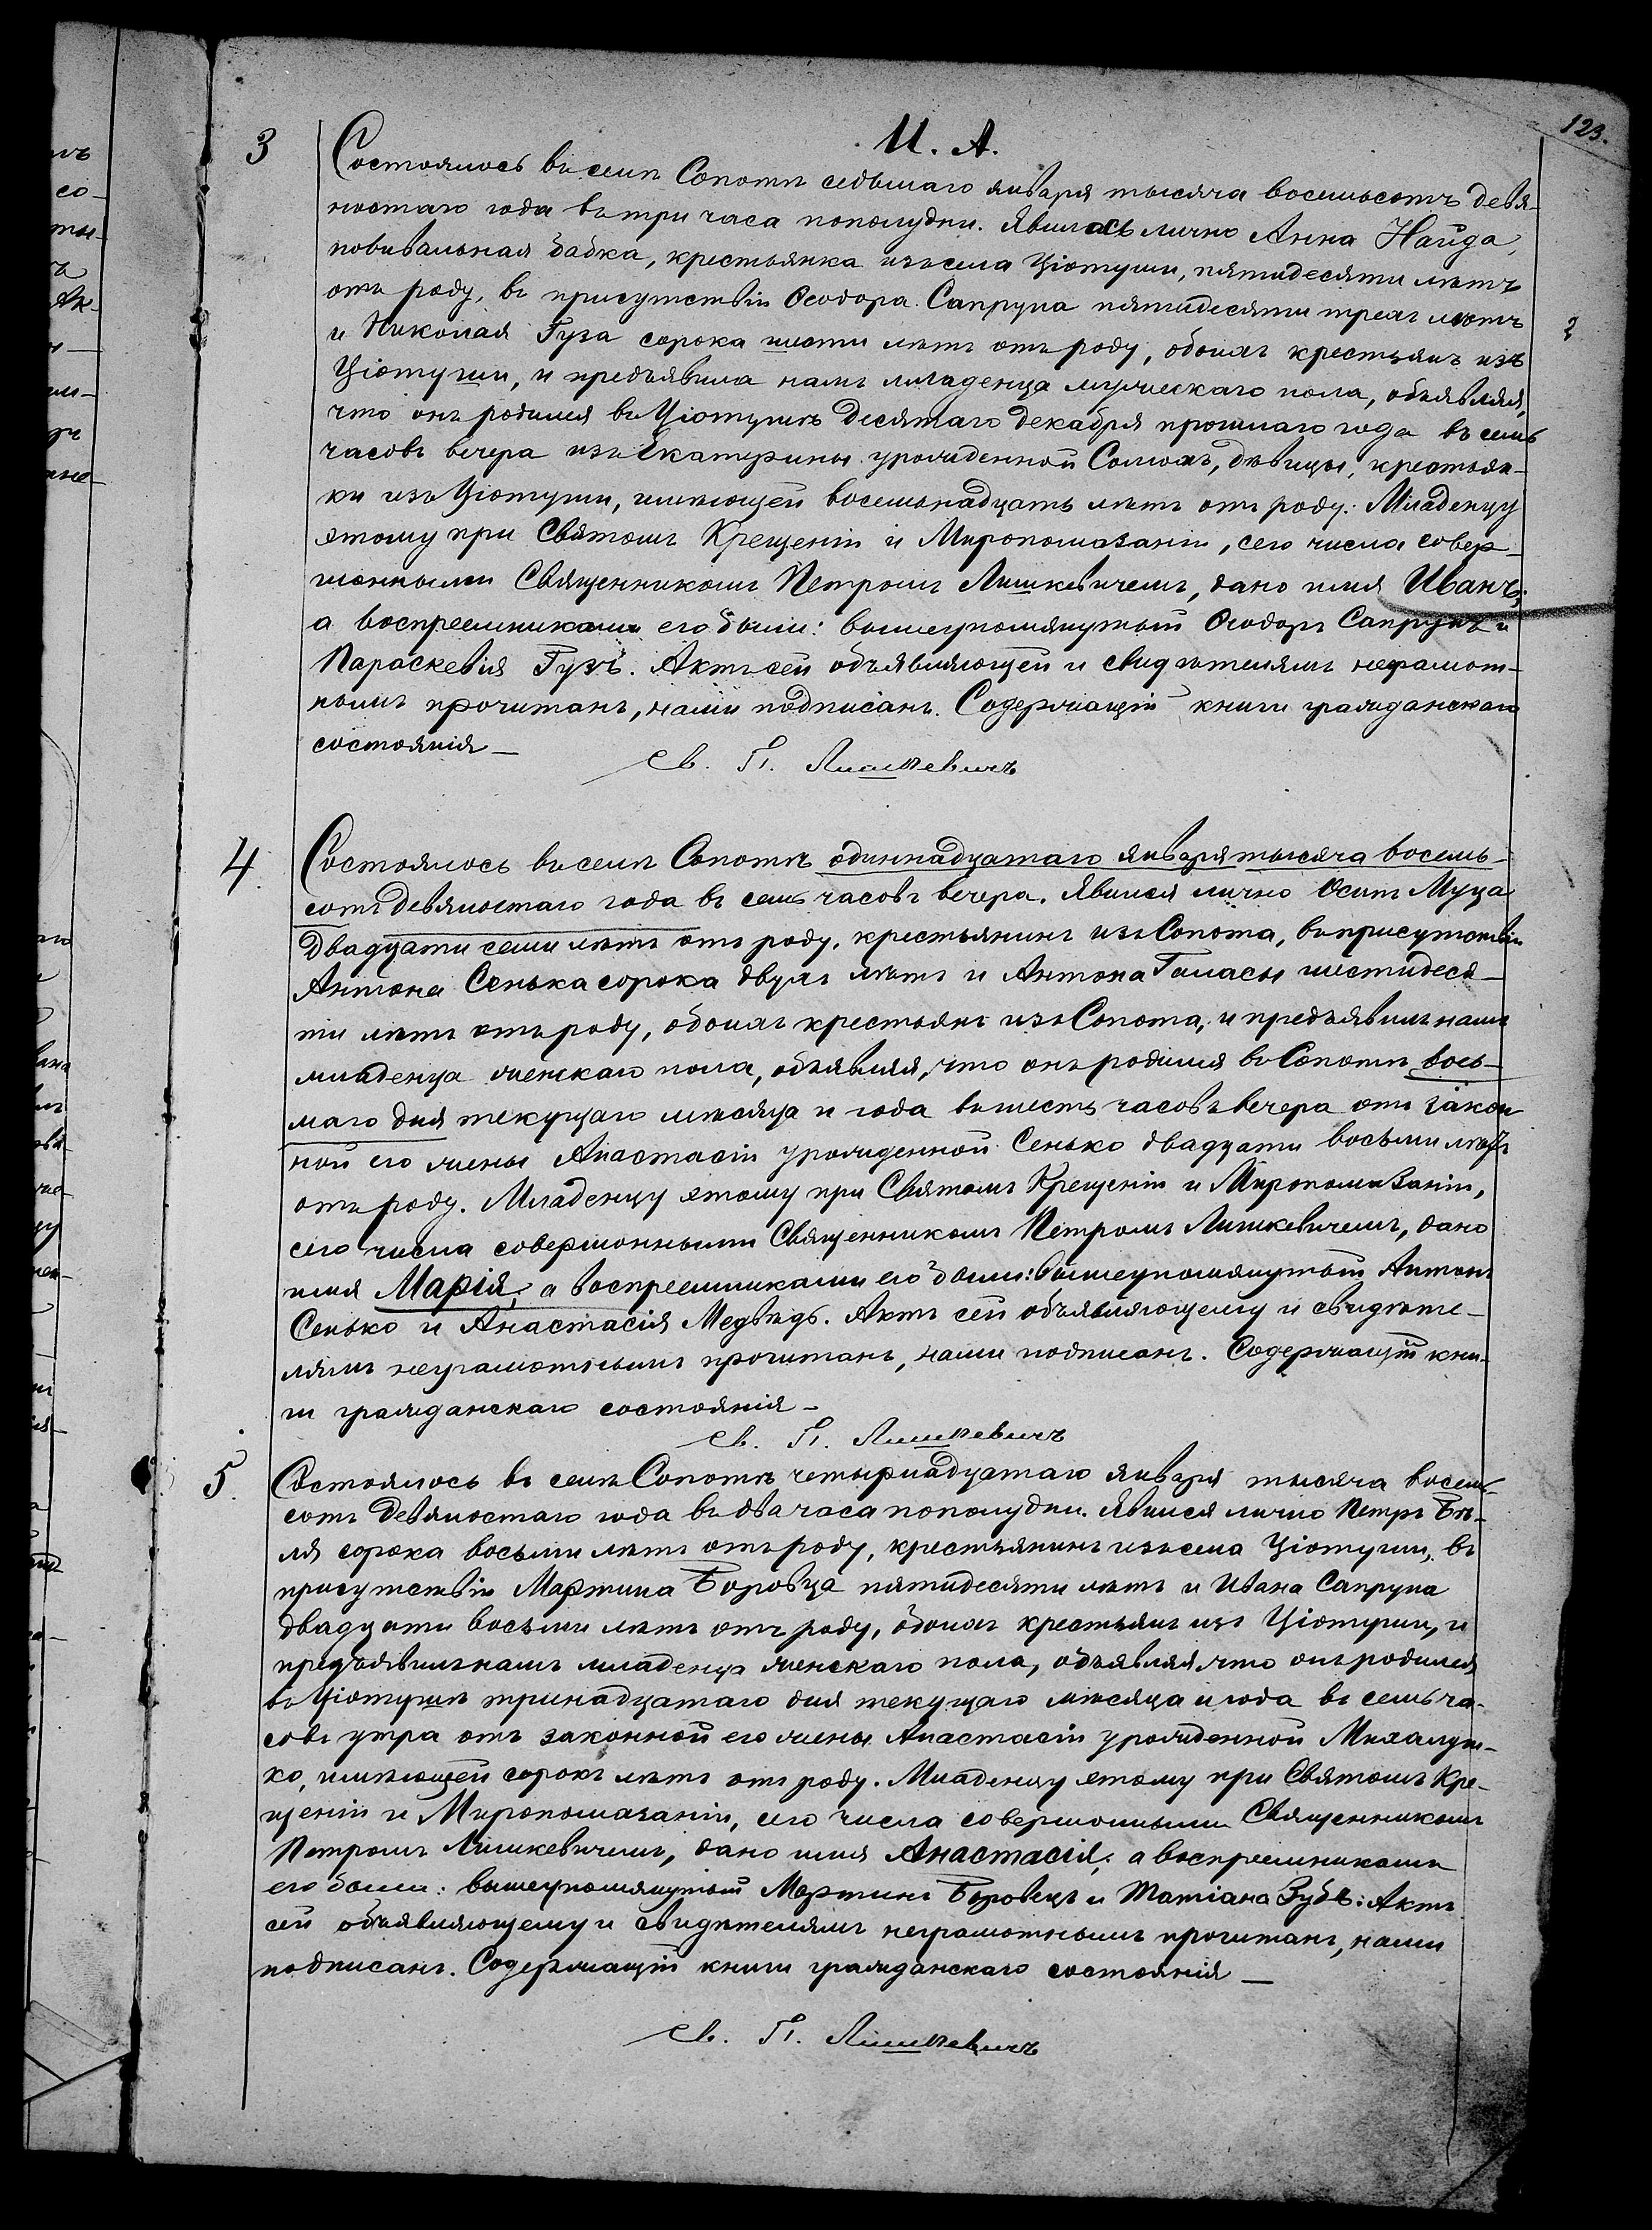 123.
И. А.
3
Состоялось въ селѣ Сопотѣ седьмаго января тысяча восемьсотъ девя-
ностаго года въ три часа пополудни. Явилась лично Анна Найда,
повивальная бабка, крестьянка изъ села Ціотуши, пятидесяти лѣтъ
отъ роду, въ присутствіи Ѳеодора Сапруна пятидесяти трехъ лѣтъ
и Николая Гуза сорока шести лѣтъ отъ роду, обоихъ крестьянъ изъ
Ціотуши, и предъявила намъ младенца мужескаго пола, объявляя,
что онъ родился въ Ціотушѣ десятаго декабря прошлаго года въ семь
часовъ вечера изъ Екатерины урожденной Соломъ, дѣвицы, крестьян-
ки изъ Ціотуши, имѣющей восемьнадцать лѣтъ отъ роду. Младенцу
этому при Святомъ Крещеніи и Миропомазаніи, сего числа совер-
шонными Священникомъ Петромъ Лишкевичемъ, дано имя Иванъ;
а воспреемниками его были: вышеупомянутый Ѳеодоръ Сапрунъ и
Параскевія Гузъ. Актъ сей объявляющей и свидѣтелямъ неграмот-
нымъ прочитанъ, нами подписанъ. Содержащій книги гражданскаго
состоянія —
Св. П. Лишкевичъ
4.
Состоялось въ селѣ Сопотѣ одиннадцатаго января тысяча восемь-
сотъ девяностаго года въ семь часовъ вечера. Явился лично Осипъ Муца
двадцати семи лѣтъ отъ роду, крестьянинъ изъ Сопота, въ присутствіи
Антона Сенька сорока двухъ лѣтъ и Антона Галасы шестидеся-
ти лѣтъ отъ роду, обоихъ крестьянъ изъ Сопота, и предъявилъ намъ
младенца женскаго пола, объявляя, что онъ родился въ Сопотѣ вось-
маго дня текущаго мѣсяца и года въ шесть часовъ вечера отъ закон-
ной его жены Анастасіи урожденной Сенько двадцати восьми лѣтъ
отъ роду. Младенцу этому при Святомъ Крещеніи и Миропомазаніи,
сего числа совершонными Священникомъ Петромъ Лишкевичемъ, дано
имя Марія; а воспреемниками его были: вышеупомянутый Антонъ
Сенько и Анастасія Медвѣдь. Актъ сей объявляющему и свидѣте-
лямъ неграмотнымъ прочитанъ, нами подписанъ. Содержащій кни-
ги гражданскаго состоянія —
Св. П. Лишкевичъ
5.
Состоялось въ селѣ Сопотѣ четырнадцатаго января тысяча восемь-
сотъ девяностаго года въ два часа пополудни. Явился лично Петръ Бѣ-
ля сорока восьми лѣтъ отъ роду, крестьянинъ изъ села Ціотуши, въ
присутствіи Мартина Боровца пятидесяти лѣтъ и Ивана Сапруна
двадцати восьми лѣтъ отъ роду, обоихъ крестьянъ изъ Ціотуши, и
предъявилъ намъ младенца женскаго пола, объявляя что онъ родился
въ Ціотушѣ тринадцатаго дня текущаго мѣсяца и года въ семь ча-
совъ утра отъ законной его жены Анастасіи урожденной Михалуш-
ко, имѣющей сорокъ лѣтъ отъ роду. Младенцу этому при Святомъ Кре-
щеніи и Миропомазаніи, сего числа совершонными Священникомъ
Петромъ Лишкевичемъ, дано имя Анастасія; а воспреемниками
его были: вышеупомянутый Мартинъ Боровецъ и Татіана Зубъ. Актъ
сей объявляющему и свидѣтелямъ неграмотнымъ прочитанъ, нами
подписанъ. Содержащій книги гражданскаго состоянія —
Св. П. Лишкевичъ